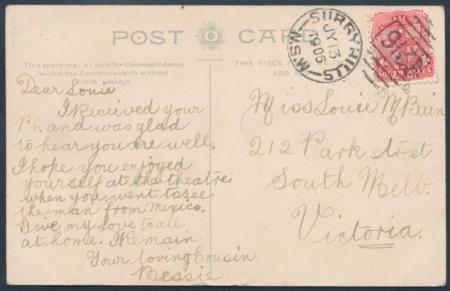 POST CARD
This space may be used for Correspondence
within the Commonwealth without
extra postage.
THIS SPACE
ADD
SURRY HILLS
JY 13
1905
N.S.W
Dear Louie
I Received your
P.C. and was glad
to hear you are well.
I hope you enjoyed
yourself at the theatre
when you went to see
the man from Mexico.
Give my love to all
at home. I Remain
Your loving Cousin
Bessie
Miss Louie McBain
212 Park street
South Melb.
Victoria.